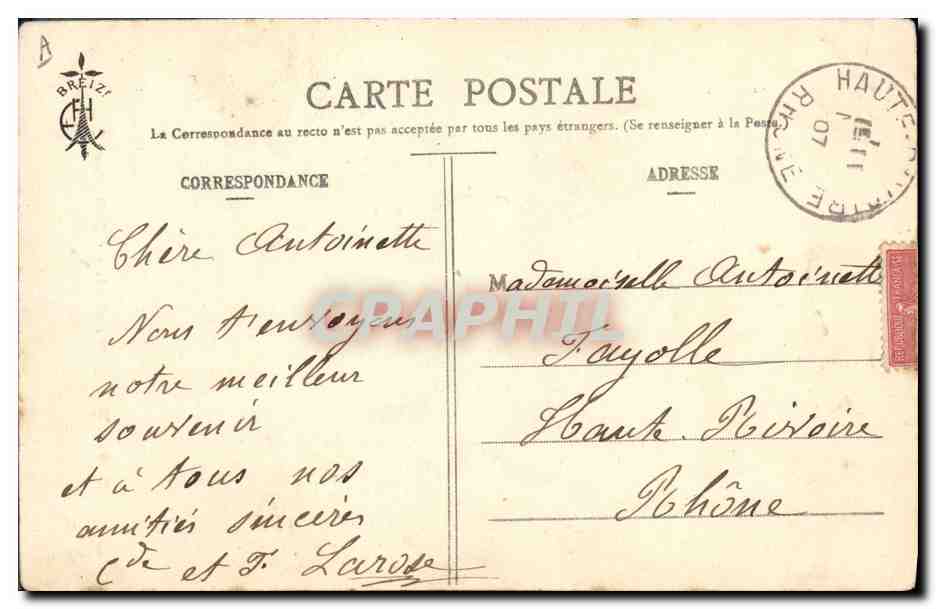 A
BREIZ
CARTE POSTALE
La Correspondance au recto n'est pas acceptée par tous les pays étrangers. (Se renseigner à la Poste.
CORRESPONDANCE
Chère Antoinette
Nous t'envoyons
notre meilleur
souvenir
et à tous nos
amitiés sincères
Cde et F. Larose
ADRESSE
Mademoiselle Antoinette
Fayolle
Haute-Rivoire
Rhône
HAUTE-RIVOIRE RHÔNE
07
REPUBLIQUE FRANÇAISE
CPARPHIL